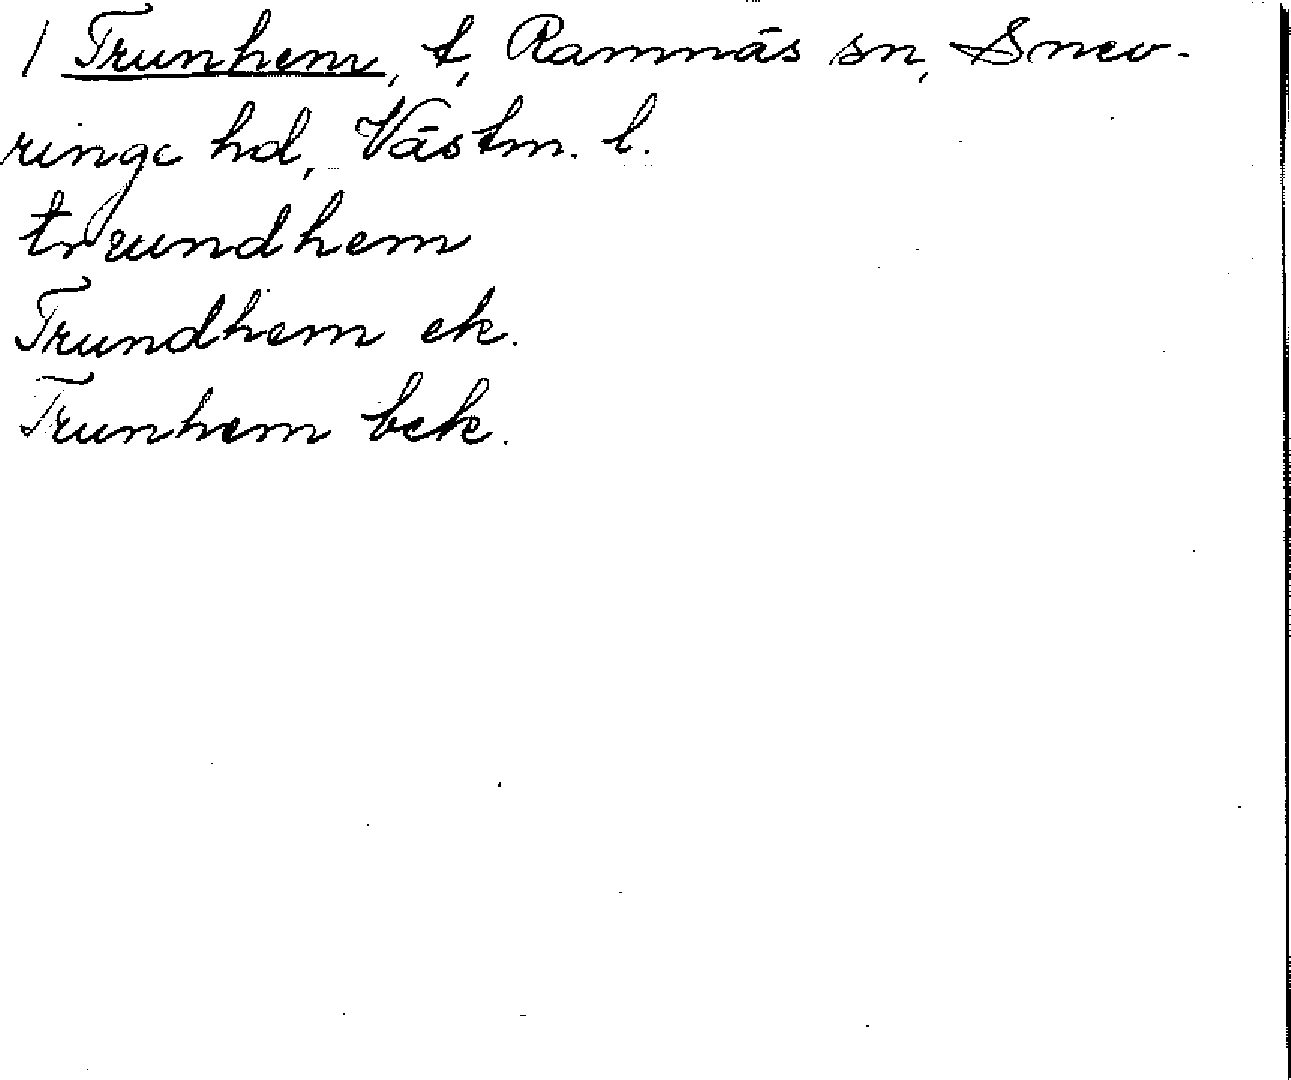 / Trunhem, t, Ramnäs sn, Snev-
ringe hd, Västm. l.
trundhem
Trundhem ek.
Trunhem bek.